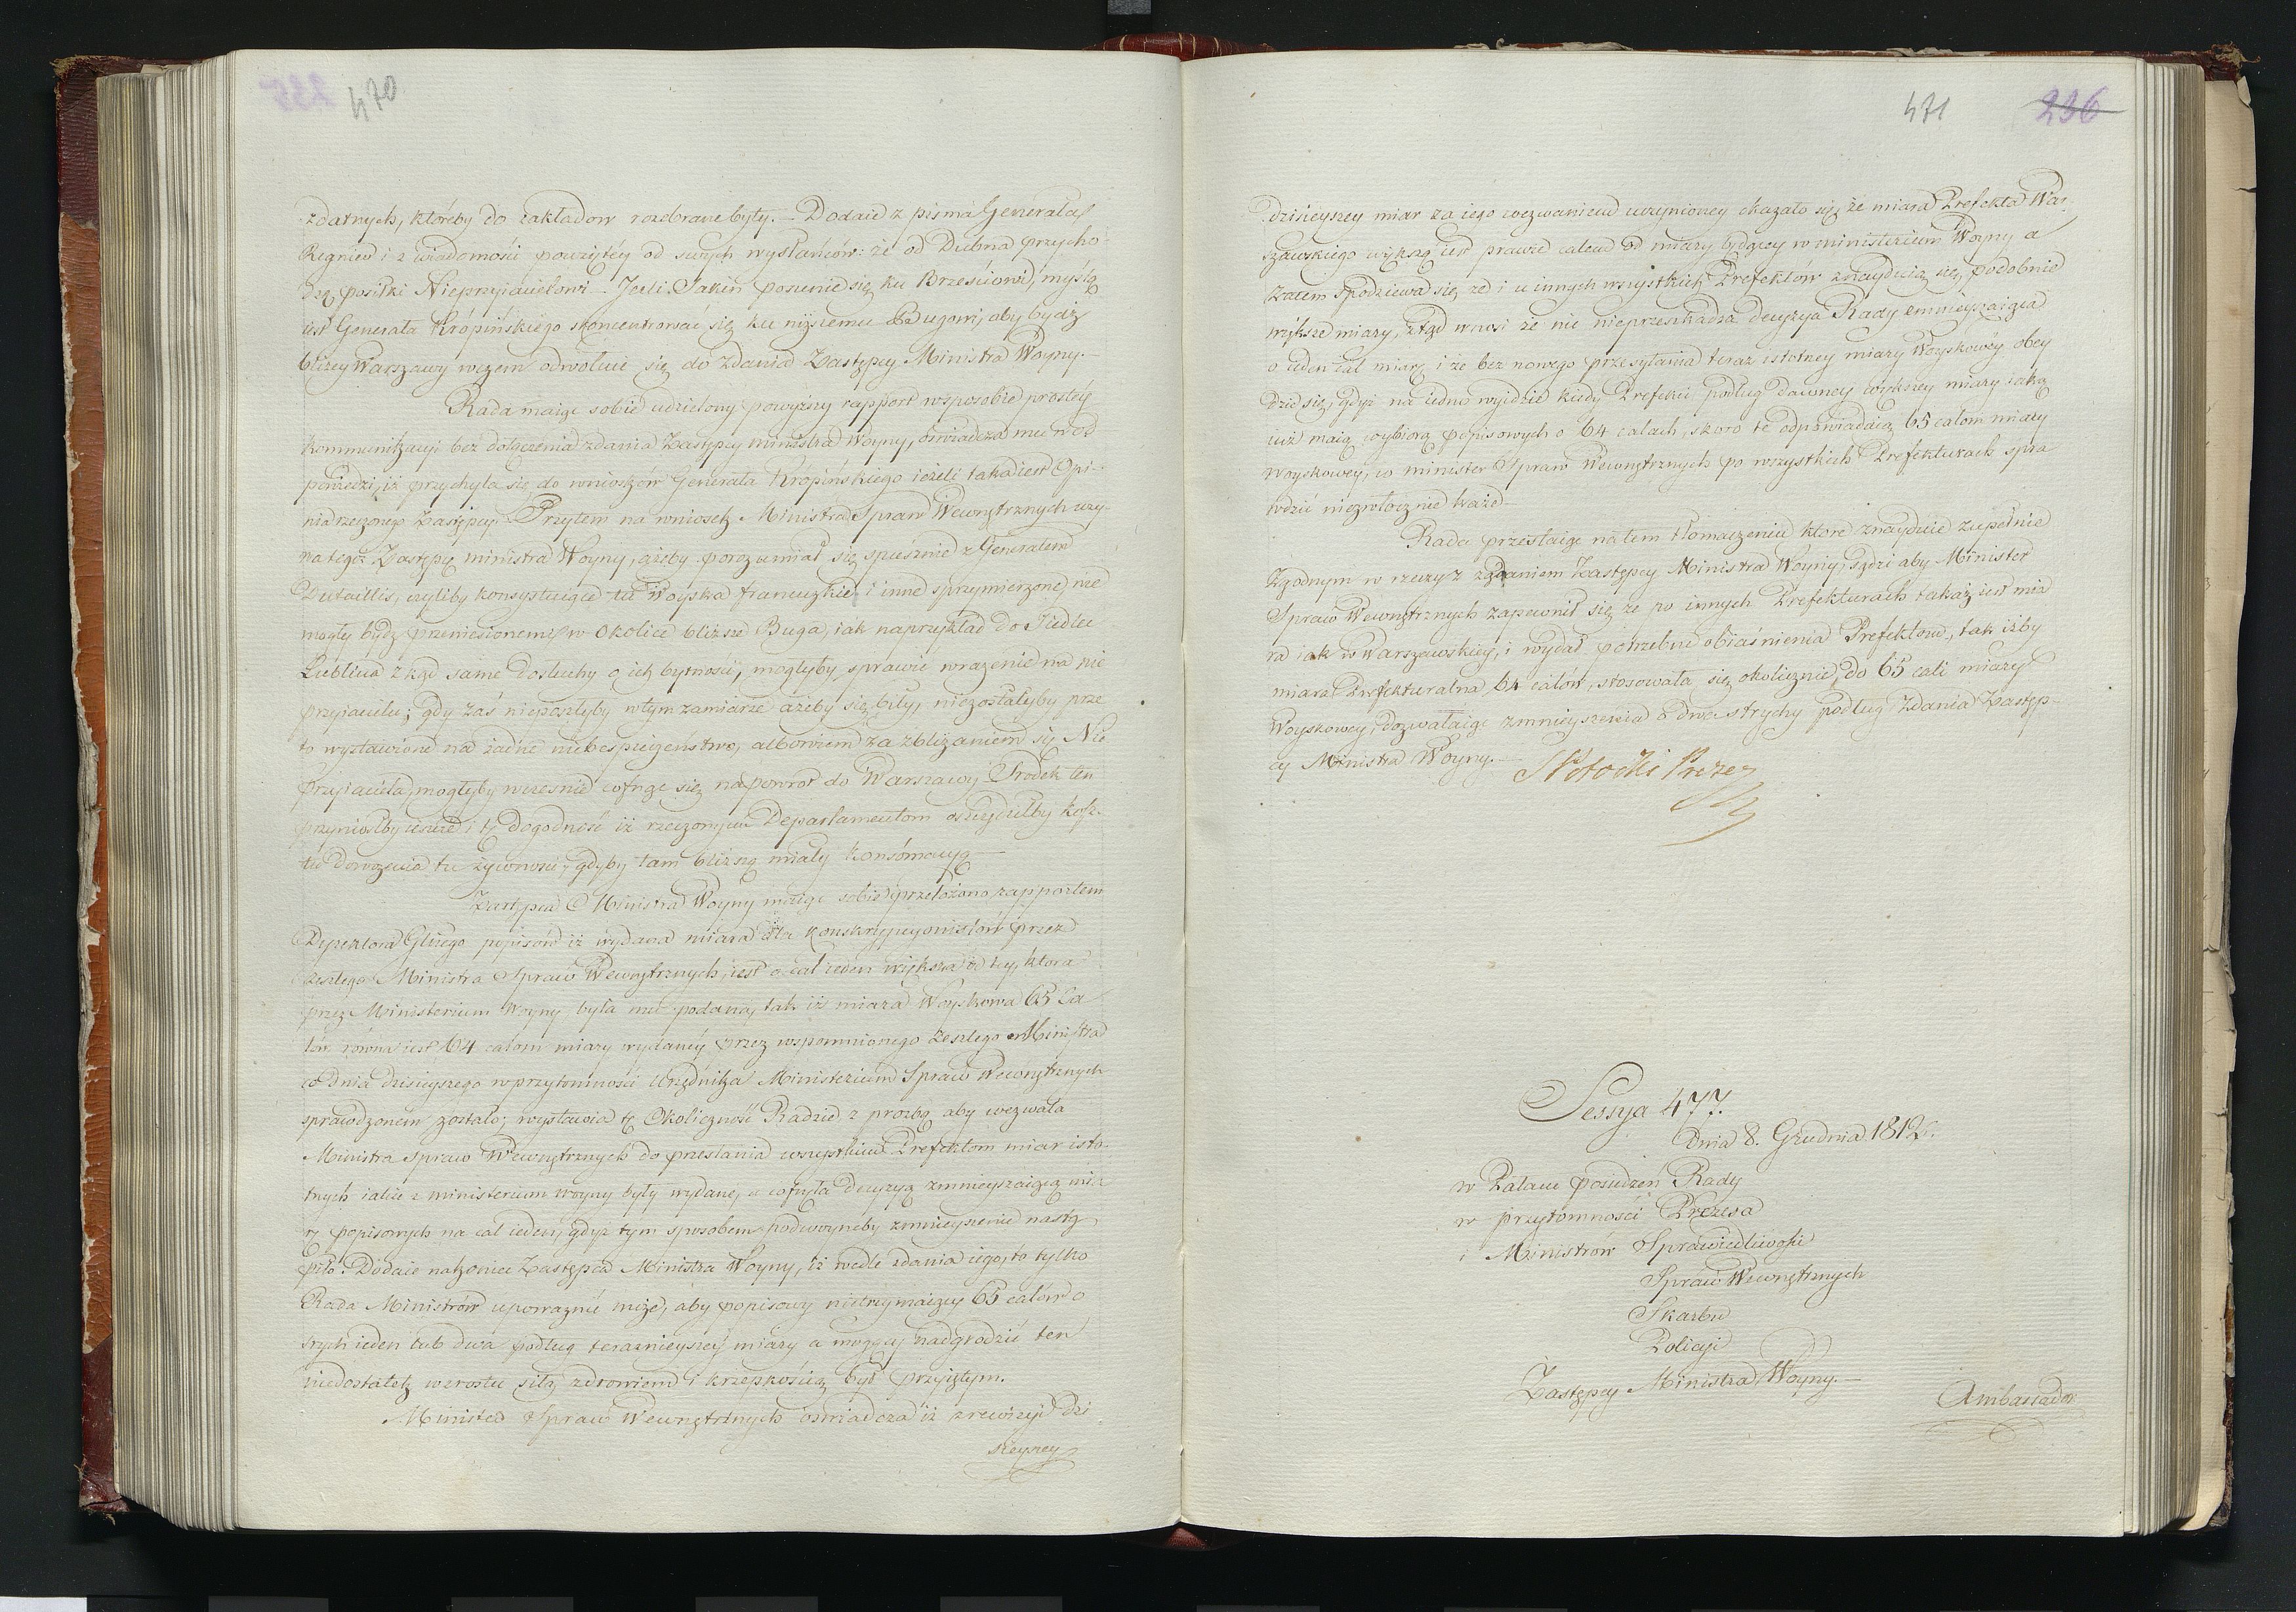 470
zdatnych, któreby do zakładow rozebrane były. – Dodaie z pisma Generała
Regnier i z wiadomości powziętéy od swych wysłańców: że od Dubna przycho-
dzą posiłki Nieprzyiacielowi. Jeśli Saken posunie się ku Brześciowi, myślą
iest Generała Kropińskiego skoncentrować się ku niższemu Bugowi, aby bydź
bliżey Warszawy wczem odwołuie się do zdania Zastępcy Ministra Woyny. –
Rada maiąc sobie udzielony powyższy rapport wsposobie prostéy
kommunikacyi bez dołączenia zdania Zastępcy ministra Woyny, oświadcza mu w od
powiedzi, iż przychyla się do wniosków Generała Kropińskiego ieżeli taka iest Opi-
nia rzeczonego Zastępcy. Przytem na wniosek Ministra Spraw Wewnętrznych wzy-
wa tegoż Zastępcę ministra Woyny, ażeby porozumiał się spiesznie z Generałem
Dutaillis, czyliby konsystuiące tu Woyska francuzkie i inne sprzymierzone, nie
mogły bydź przeniesionemi w Okolice bliższe Buga, iak naprzykład do Siedlec
Lublina zkąd same dosłuchy o ich bytności, mogłyby sprawić wrażenie na nie
przyiacielu; gdy zaś nieposzłyby wtym zamiarze ażeby się biły, niezostałyby prze
to wystawione na żadne niebespieczeństwo, albowiem za zbliżaniem się Nie
przyiaciela, mogłyby wcześnie cofnąć się napowrot do Warszawy. Srodek ten
przyniosłby ieszcze i tę dogodność iż rzeczonym Departamentom oszczędziłby kosz-
tu dowożenia tu żywności, gdyby tam bliższą miały konsómcyą –
Zastępca Ministra Woyny maiąc sobie przełożono rapportem
Dyrektora Głłego popisów iż wydana miara dla konskrypcyonistów przez
zeszłego Ministra Spraw Wewnętrznych, iest o cal ieden większa od tey, ktora
przez Ministerium Woyny była mu podana, tak iż miara Woyskowa 65 Ca
lów równa iest 64 calom miary wydanéy przez wspomnionego Zeszłego Ministra
co Dnia dzisieyszego wprzytomności Urzędnika Ministerium Spraw Wewnętrznych
sprawdzonem zostało; wystawia tę Okoliczność Radzie z prozbą aby wezwała
Ministra Spraw Wewnętrznych do przesłania wszystkim Prefektom miar isto-
tnych iakie z ministerium woyny były wydane, a cofnęła Decyzyą zmnieyszaiącą mia
rę popisowych na cal ieden, gdyż tym sposobem podwoyneby zmnieyszenie nastą
piło. Dodaie nakoniec Zastępca Ministra Woyny, iż wedle zdania iego, to tylko
Rada Ministrów upoważnić może, aby popisowy nietrzymaiący 65 calów o
strych ieden lub dwa podług teraznieyszéy miary a mogący nadgrodzić ten
niedostatek wzrostu siłą, zdrowiem i krzepkością był przyiętym.
Minister Spraw Wewnętrznych oświadcza iż z rewizyi dzi
sieyszey
471 236
dzisieyszey miar za iego wezwaniem uczynioney okazało się, że miara Prefekta War-
szawskiego większą iest prawie calem od miary będącey w ministerium Woyny a
zatem spodziewa się że i u innych wszystkich Prefektów znayduią się, podobnie
większe miary, ztąd wnosi że nic nieprzeszkadza decyzya Rady zmnieyszaiąca
o ieden cal miarę i że bez nowego przesyłania teraz istotney miary Woyskowéy obey
dzie się, gdyż na iedno wyidzie kiedy Prefekci podług dawney większey miary iaką
iuż maią wybiorą popisowych o 64 calach, skoro te odpowiadaią 65 calom miary
Woyskowey, co minister Spraw Wewnętrznych po wszystkich Prefekturach spra
wdzić niezwłocznie każe –
Rada przestaiąc na tem tłomaczeniu które znayduie zupełnie
zgodnym w rzeczy z zdaniem Zastępcy Ministra Woyny, sądzi aby Minister
Spraw Wewnętrznych zapewnił się że po innych Prefekturach takaż iest mia
ra iak w Warszawskiey, i wydał potrzebne obiaśnienia Prefektom, tak iżby
miara Prefekturalna 64 calów, stosowała się okolicznie do 65 cali miary
Woyskowey, dozwalaiąc zmnieyszenia o dwa strychy podług Zdania Zastęp-
cy Ministra Woyny. –
S Potocki Prezes
Sessya 477.
Dnia 8. Grudnia 1812.
w Pałacu posiedzeń Rady
w przytomności Prezesa
i Ministrów Sprawiedliwości
Spraw Wewnętrznych
Skarbu
Policyi
Zastępcy Ministra Woyny. –
Ambassador